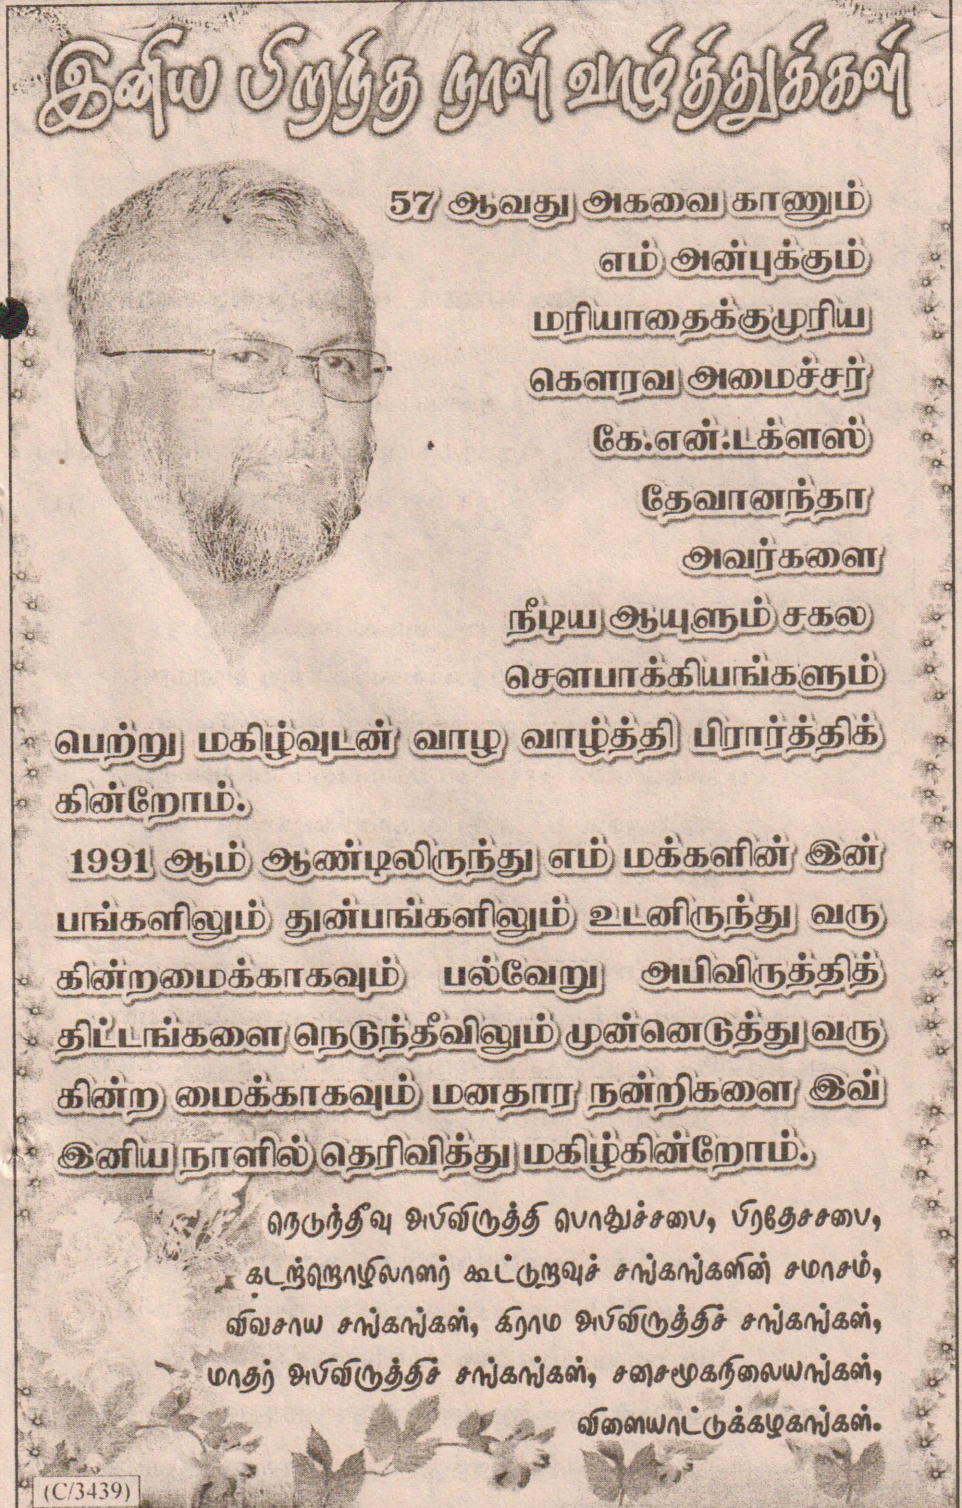 இனிய பிறந்த நாள் வாழ்த்துக்கள்
57 ஆவது அகவை காணும்
எம் அன்புக்கும்
மரியாதைக்குமுரிய
கௌரவ அமைச்சர்
கே.என்.டக்ளஸ்
தேவானந்தா
அவர்களை
நீடிய ஆயுளும் சகல
சௌபாக்கியங்களும்
பெற்று மகிழ்வுடன் வாழ வாழ்த்தி பிரார்த்திக்
கின்றோம்.
1991 ஆம் ஆண்டிலிருந்து எம் மக்களின் இன்
பங்களிலும் துன்பங்களிலும் உடனிருந்து வரு
கின்றமைக்காகவும் பல்வேறு அபிவிருத்தித்
திட்டங்களை நெடுந்தீவிலும் முன்னெடுத்து வரு
கின்ற மைக்காகவும் மனதார நன்றிகளை இவ்
இனிய நாளில் தெரிவித்து மகிழ்கின்றோம்.
நெடுந்தீவு அபிவிருத்தி பொதுச்சபை, பிரதேசசபை,
கடற்றொழிலாளர் கூட்டுறவுச் சங்கங்களின் சமாசம்,
விவசாய சங்கங்கள், கிராம அபிவிருத்திச் சங்கங்கள்,
மாதர் அபிவிருத்திச் சங்கங்கள், சனசமூகநிலையங்கள்,
விளையாட்டுக்கழகங்கள்.
(C/3439)